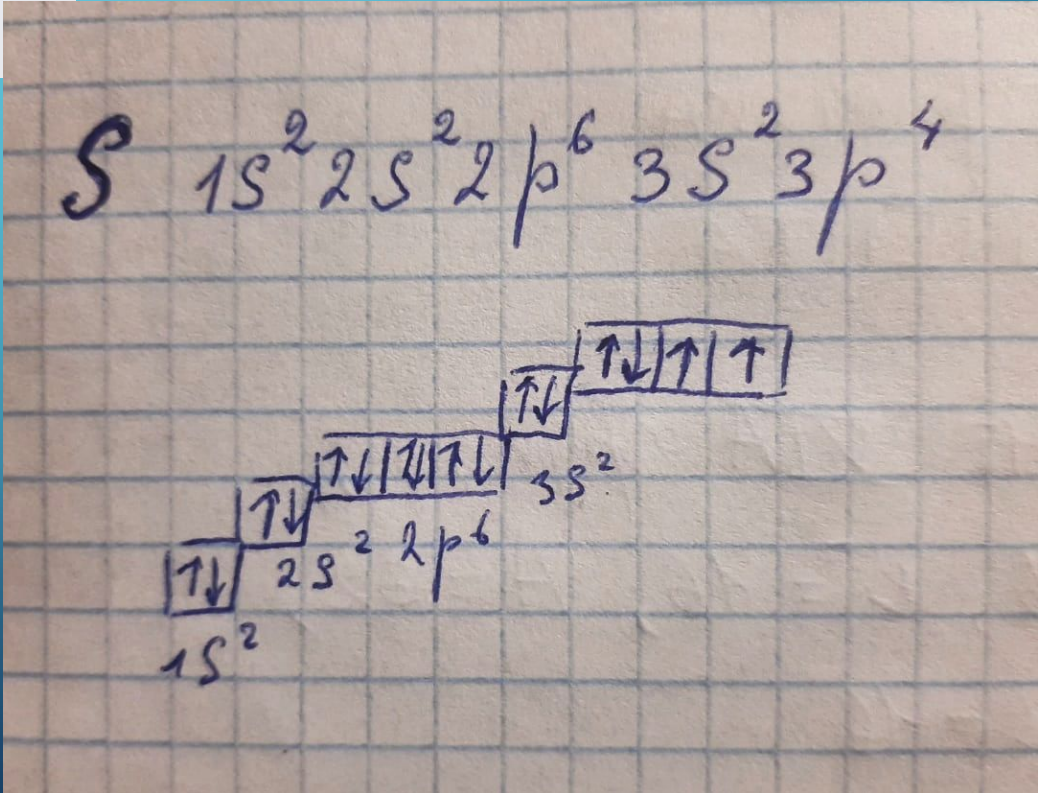 S 1s² 2s² 2p⁶ 3s² 3p⁴
↑↓ ↑ ↑
↑↓
↑↓ ↑↓ ↑↓ 3s²
↑↓
2s² 2p⁶
↑↓
1s²